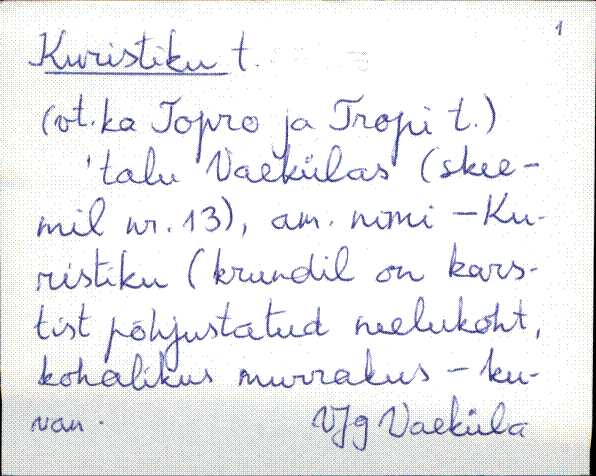 1
Kuristiku t.
(vt. ka Topro ja Tropi t.)
'talu Vaekülas (skee-
mil nr. 13), am. nimi - Ku-
ristiku (krundil on kars-
tist põhjustatud neelukoht,
kohalikus murrakus - ku-
van.
VJg Vaeküla